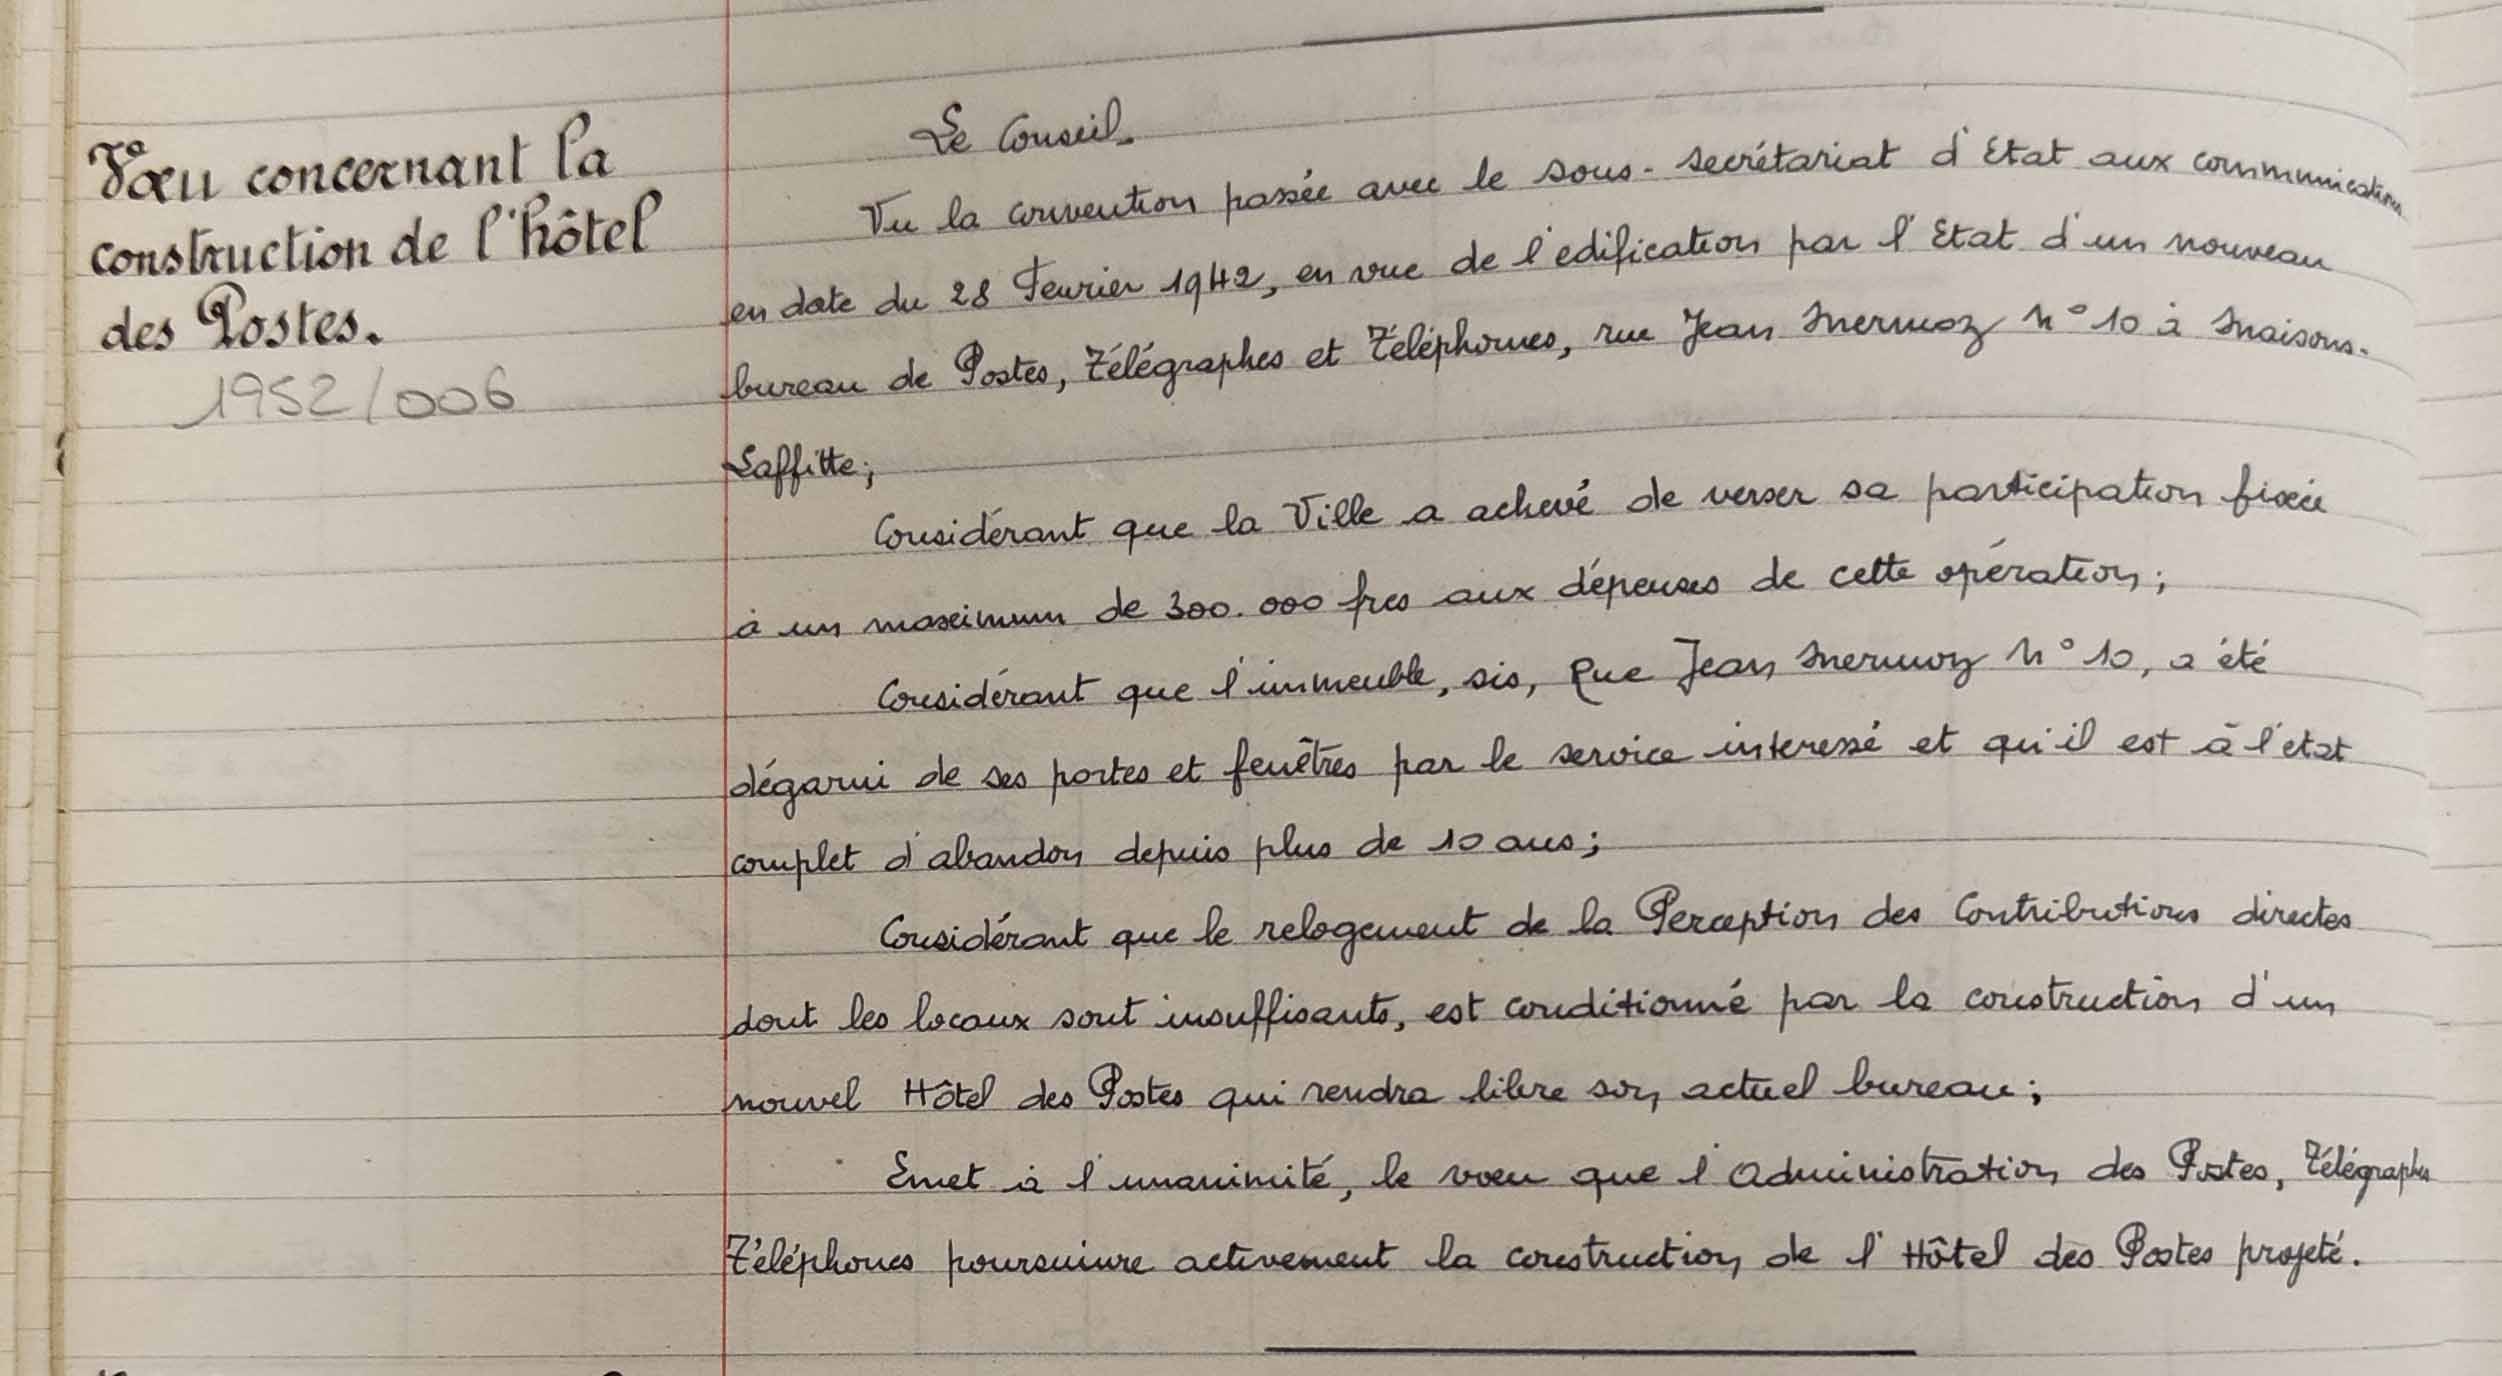 Vœu concernant la
construction de l'hôtel
des Postes.
1952/006
Le Conseil.
Vu la convention passée avec le sous-secrétariat d'Etat aux communications
en date du 28 Fevrier 1942, en vue de l'edification par l'Etat d'un nouveau
bureau de Postes, Télégraphes et Téléphones, rue Jean Mermoz N° 10 à Maisons-
Laffitte;
Considérant que la Ville a achevé de verser sa participation fixée
à un maximum de 300.000 frcs aux dépenses de cette opération;
Considérant que l'immeuble, sis, Rue Jean Mermoz N° 10, a été
dégarni de ses portes et fenêtres par le service interessé et qu'il est à l'état
complet d'abandon depuis plus de 10 ans;
Considérant que le relogement de la Perception des Contributions directes
dont les locaux sont insuffisants, est conditionné par la construction d'un
nouvel Hôtel des Postes qui rendra libre son actuel bureau;
Emet à l'unanimité, le vœu que l'Administration des Postes, Télégraphes
Téléphones poursuivre activement la construction de l'Hôtel des Postes projeté.